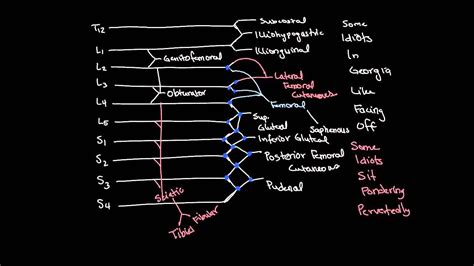 T12
L1
L2
L3
L4
L5
S1
S2
S3
S4
Subcostal
Illiohypogastric
Illionguinal
Genitofemoral
Lateral
Femoral
Cutaneous
Obturator
Femoral
Saphenous
Sup.
Gluteal
Inferior Gluteal
Posterior Femoral
Cutaneous
Pudenal
Sciatic
Fibular
Tibial
Some
Idiots
In
Georgia
Like
Facing
Off
Some
Idiots
Sit
Pondering
Pervertedly